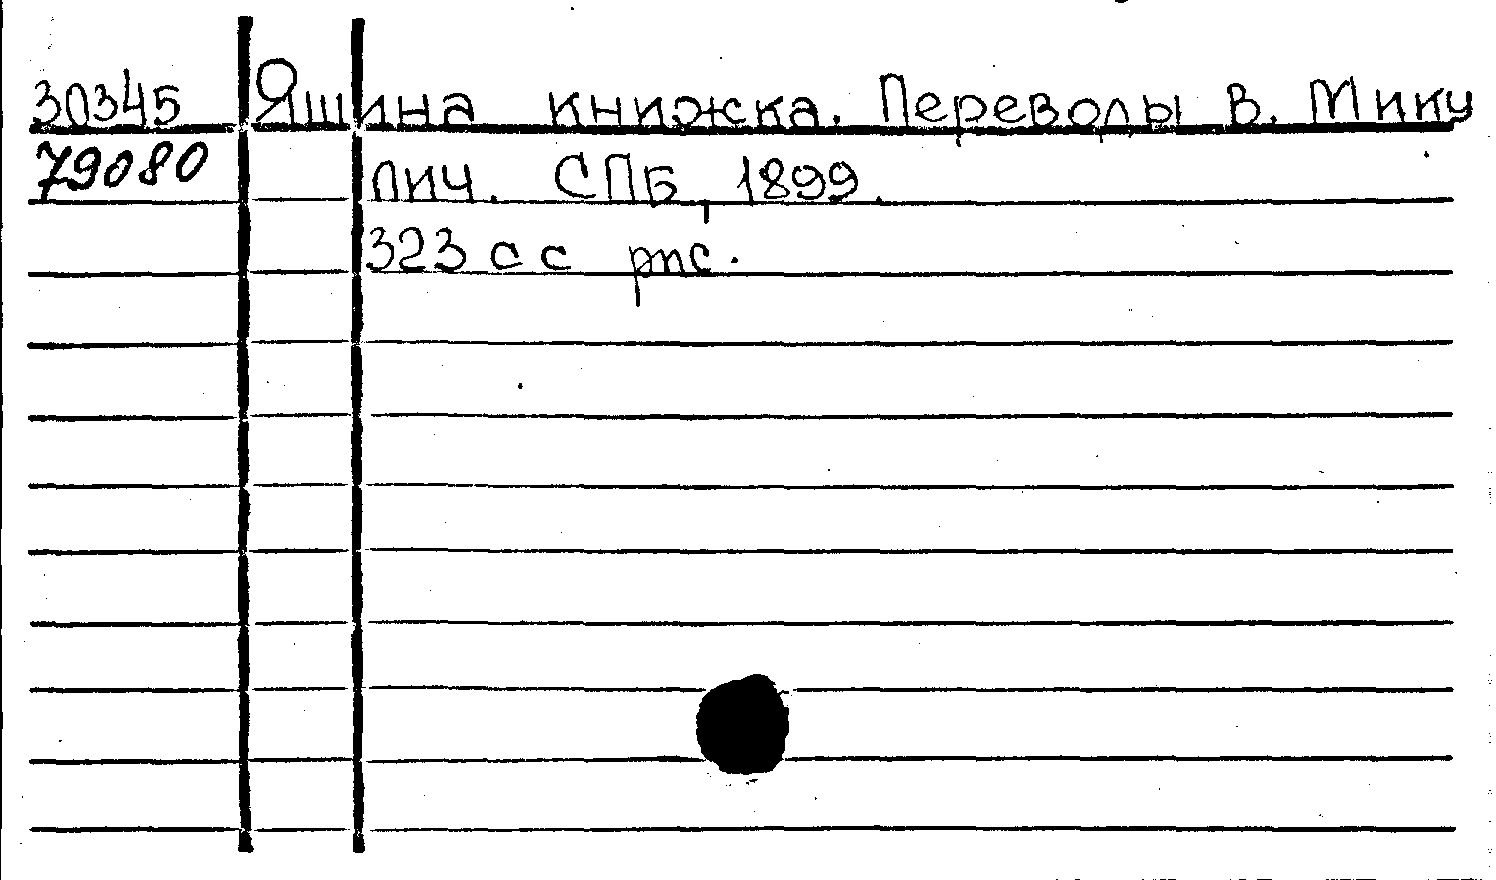 30345 Яшина книжка. Переводы В. Мику
79080 лич. СПБ, 1899.
323 с с рис.